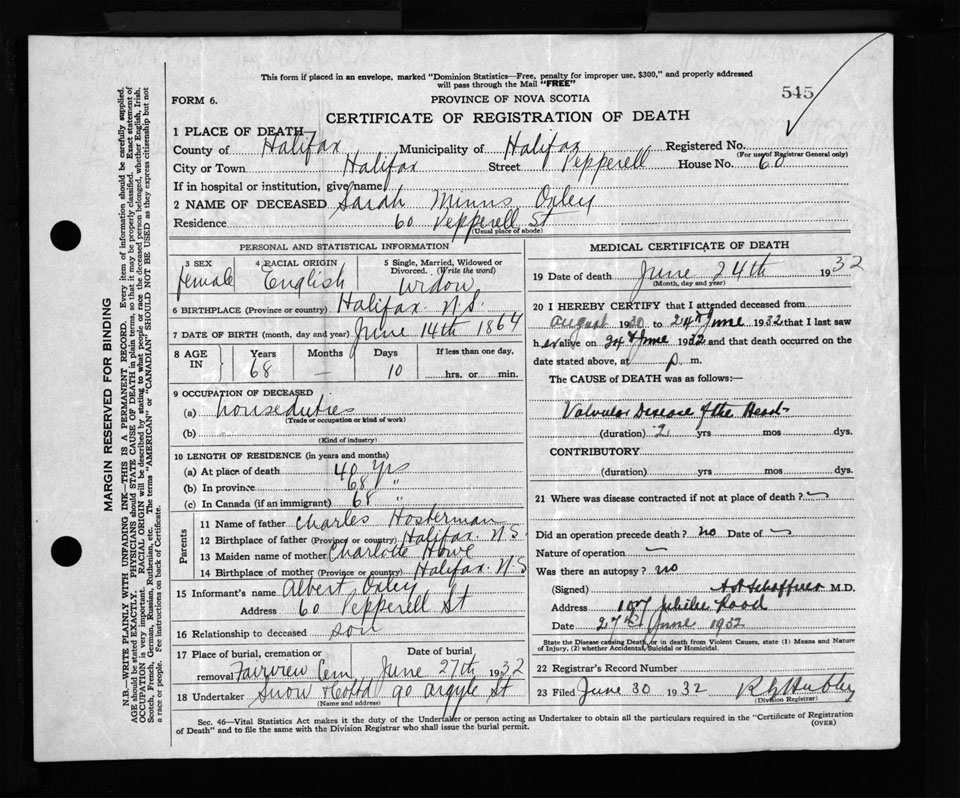 This form if placed in an envelope, marked "Dominion Statistics—Free, penalty for improper use, $300," and properly addressed
will pass through the Mail "FREE"
545
FORM 6.
PROVINCE OF NOVA SCOTIA
CERTIFICATE OF REGISTRATION OF DEATH
1 PLACE OF DEATH—
County of Halifax Municipality of Halifax Registered No.
(For use of Registrar General only)
City or Town Halifax Street Pepperell House No. 60
If in hospital or institution, give name
2 NAME OF DECEASED Sarah Minns Oxley
Residence 60 Pepperell St
(Usual place of abode)
PERSONAL AND STATISTICAL INFORMATION
3 SEX 4 RACIAL ORIGIN 5 Single, Married, Widowed or
Divorced. (Write the word)
female English Widow
6 BIRTHPLACE (Province or country) Halifax N.S.
7 DATE OF BIRTH (month, day and year) June 14th 1864
8 AGE IN Years Months Days If less than one day,
68 — 10 hrs. or min.
9 OCCUPATION OF DECEASED
(a) houseduties
(Trade or occupation or kind of work)
(b)
(Kind of industry)
10 LENGTH OF RESIDENCE (in years and months)
(a) At place of death 40 yrs
(b) In province 68 "
(c) In Canada (if an immigrant) 68 "
Parents
11 Name of father Charles Hosterman
12 Birthplace of father (Province or country) Halifax. N.S.
13 Maiden name of mother Charlotte Howe
14 Birthplace of mother (Province or country) Halifax. N.S
15 Informant's name Albert Oxley
Address 60 Pepperell St
16 Relationship to deceased son
17 Place of burial, cremation or Date of burial
removal Fairview Cem June 27th 1932
18 Undertaker Snow & Co Ltd 90 Argyle St
(Name and address)
MEDICAL CERTIFICATE OF DEATH
19 Date of death June 24th 1932
(Month, day and year)
20 I HEREBY CERTIFY that I attended deceased from
August 1930 to 24th June 1932 that I last saw
her alive on 24th June 1932 and that death occurred on the
date stated above, at p m.
The CAUSE of DEATH was as follows:—
Valvular Disease of the Heart
(duration) 2 yrs mos dys.
CONTRIBUTORY
(duration) yrs mos dys.
21 Where was disease contracted if not at place of death?
Did an operation precede death? no Date of
Nature of operation
Was there an autopsy? no
(Signed) M.D.
Address 107 Jubilee Road
Date 27th June 1932
State the Disease causing Death, or in death from Violent Causes, state (1) Means and Nature
of Injury, (2) whether Accidental, Suicidal or Homicidal.
22 Registrar's Record Number
23 Filed June 30 1932
(Division Registrar)
Sec. 46—Vital Statistics Act makes it the duty of the Undertaker or person acting as Undertaker to obtain all the particulars required in the "Certificate of Registration
of Death" and to file the same with the Division Registrar who shall issue the burial permit.
(OVER)
MARGIN RESERVED FOR BINDING
N.B.—WRITE PLAINLY WITH UNFADING INK—THIS IS A PERMANENT RECORD. Every item of information should be carefully supplied.
AGE should be stated EXACTLY. PHYSICIANS should STATE CAUSE OF DEATH in plain terms, so that it may be properly classified. Exact statement of
OCCUPATION is very important. RACIAL ORIGIN will be described by stating to what people or race the deceased person belonged, whether English, Irish,
Scotch, French, German, Russian, Ruthenian, etc. The terms "AMERICAN" or "CANADIAN" SHOULD NOT BE USED as they express citizenship but not
a race or people. Fee instructions on back of Certificate.